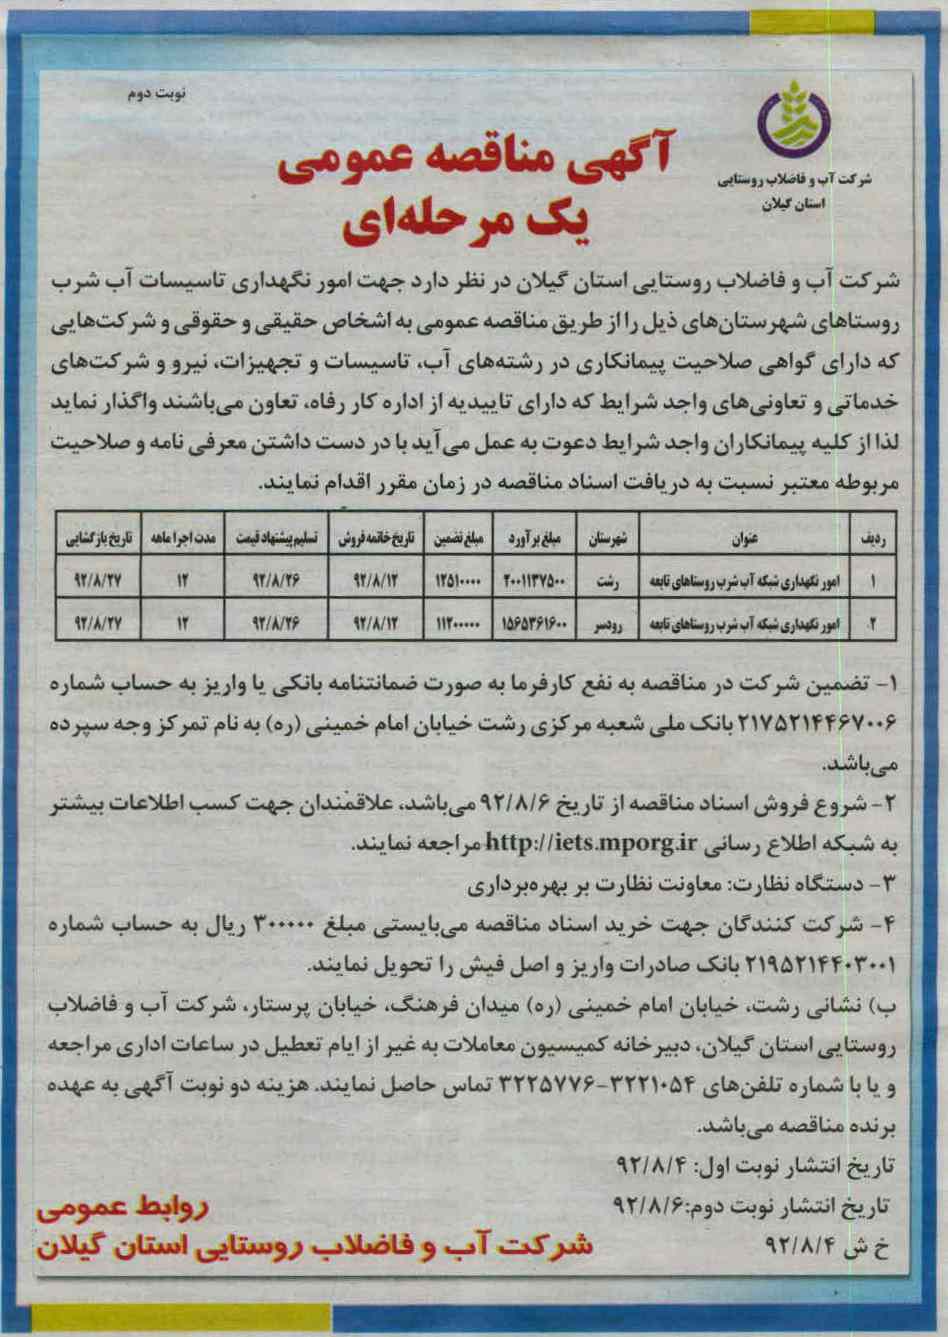 نوبت دوم
شرکت آب و فاضلاب روستایی
استان گیلان
آگهی مناقصه عمومی
یک مرحله‌ای
شرکت آب و فاضلاب روستایی استان گیلان در نظر دارد جهت امور نگهداری تاسیسات آب شرب
روستاهای شهرستان‌های ذیل را از طریق مناقصه عمومی به اشخاص حقیقی و حقوقی و شرکت‌هایی
که دارای گواهی صلاحیت پیمانکاری در رشته‌های آب، تاسیسات و تجهیزات، نیرو و شرکت‌های
خدماتی و تعاونی‌های واجد شرایط که دارای تاییدیه از اداره کار رفاه، تعاون می‌باشند واگذار نماید
لذا از کلیه پیمانکاران واجد شرایط دعوت به عمل می‌آید با در دست داشتن معرفی نامه و صلاحیت
مربوطه معتبر نسبت به دریافت اسناد مناقصه در زمان مقرر اقدام نمایند.
ردیف عنوان شهرستان مبلغ برآورد مبلغ تضمین تاریخ خاتمه فروش تسلیم پیشنهاد قیمت مدت اجرا ماهه تاریخ بازگشایی
۱ امور نگهداری شبکه آب شرب روستاهای تابعه رشت ۲۰۰۱۱۳۷۵۰۰ ۱۲۵۱۰۰۰۰ ۹۲/۸/۱۲ ۹۲/۸/۲۶ ۱۲ ۹۲/۸/۲۷
۲ امور نگهداری شبکه آب شرب روستاهای تابعه رودسر ۱۵۶۵۳۶۱۶۰۰ ۱۱۲۰۰۰۰۰ ۹۲/۸/۱۲ ۹۲/۸/۲۶ ۱۲ ۹۲/۸/۲۷
۱- تضمین شرکت در مناقصه به نفع کارفرما به صورت ضمانتنامه بانکی یا واریز به حساب شماره
۲۱۷۵۲۱۴۴۶۷۰۰۶ بانک ملی شعبه مرکزی رشت خیابان امام خمینی (ره) به نام تمرکز وجه سپرده
می‌باشد.
۲- شروع فروش اسناد مناقصه از تاریخ ۹۲/۸/۶ می‌باشد، علاقمندان جهت کسب اطلاعات بیشتر
به شبکه اطلاع رسانی http://iets.mporg.ir مراجعه نمایند.
۳- دستگاه نظارت: معاونت نظارت بر بهره‌برداری
۴- شرکت کنندگان جهت خرید اسناد مناقصه می‌بایستی مبلغ ۳۰۰۰۰۰ ریال به حساب شماره
۲۱۹۵۲۱۴۴۰۳۰۰۱ بانک صادرات واریز و اصل فیش را تحویل نمایند.
ب) نشانی رشت، خیابان امام خمینی (ره) میدان فرهنگ، خیابان پرستار، شرکت آب و فاضلاب
روستایی استان گیلان، دبیرخانه کمیسیون معاملات به غیر از ایام تعطیل در ساعات اداری مراجعه
و یا با شماره تلفن‌های ۳۲۲۱۰۵۴-۳۲۲۵۷۷۶ تماس حاصل نمایند. هزینه دو نوبت آگهی به عهده
برنده مناقصه می‌باشد.
تاریخ انتشار نوبت اول: ۹۲/۸/۴
تاریخ انتشار نوبت دوم:۹۲/۸/۶
خ ش ۹۲/۸/۴
روابط عمومی
شرکت آب و فاضلاب روستایی استان گیلان